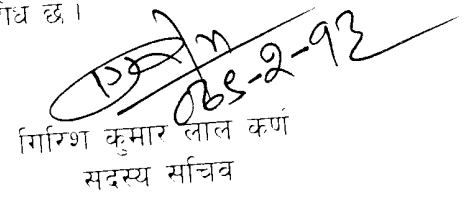 ोध छ ।
०६९-२-१३
गिरिश कुमार लाल कर्ण
सदस्य सचिव